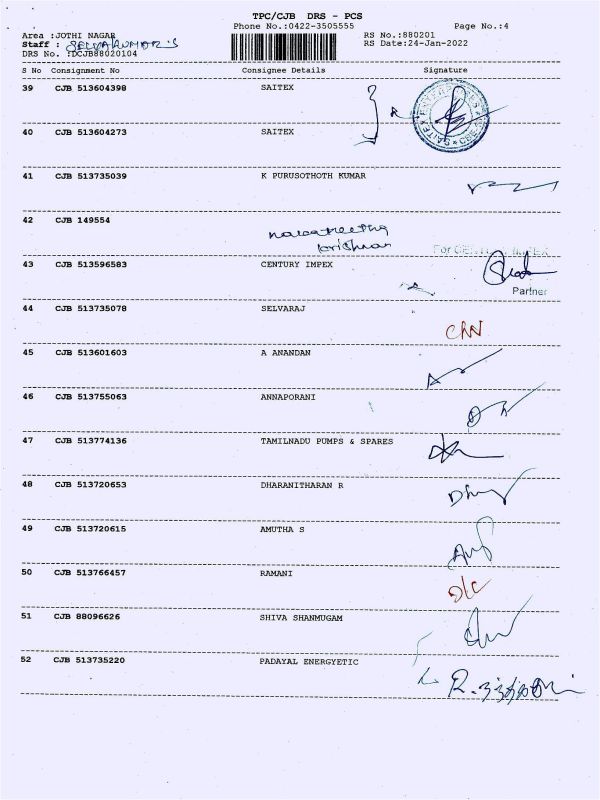 TPC/CJB DRS - PCS
Phone No.:0422-3505555 Page No.:4
Area :JOTHI NAGAR RS No.:880201
Staff : SELVAKUMAR S RS Date:24-Jan-2022
DRS No. :DCJB88020104
S No Consignment No Consignee Details Signature
39 CJB 513604398 SAITEX
40 CJB 513604273 SAITEX
41 CJB 513735039 K PURUSOTHOTH KUMAR
42 CJB 149554
krishnan
For CENTURY IMPEX
43 CJB 513596583 CENTURY IMPEX
Partner
44 CJB 513735078 SELVARAJ
45 CJB 513601603 A ANANDAN
46 CJB 513755063 ANNAPORANI
47 CJB 513774136 TAMILNADU PUMPS & SPARES
48 CJB 513720653 DHARANITHARAN R
49 CJB 513720615 AMUTHA S
50 CJB 513766457 RAMANI
D/C
51 CJB 88096626 SHIVA SHANMUGAM
52 CJB 513735220 PADAYAL ENERGYETIC